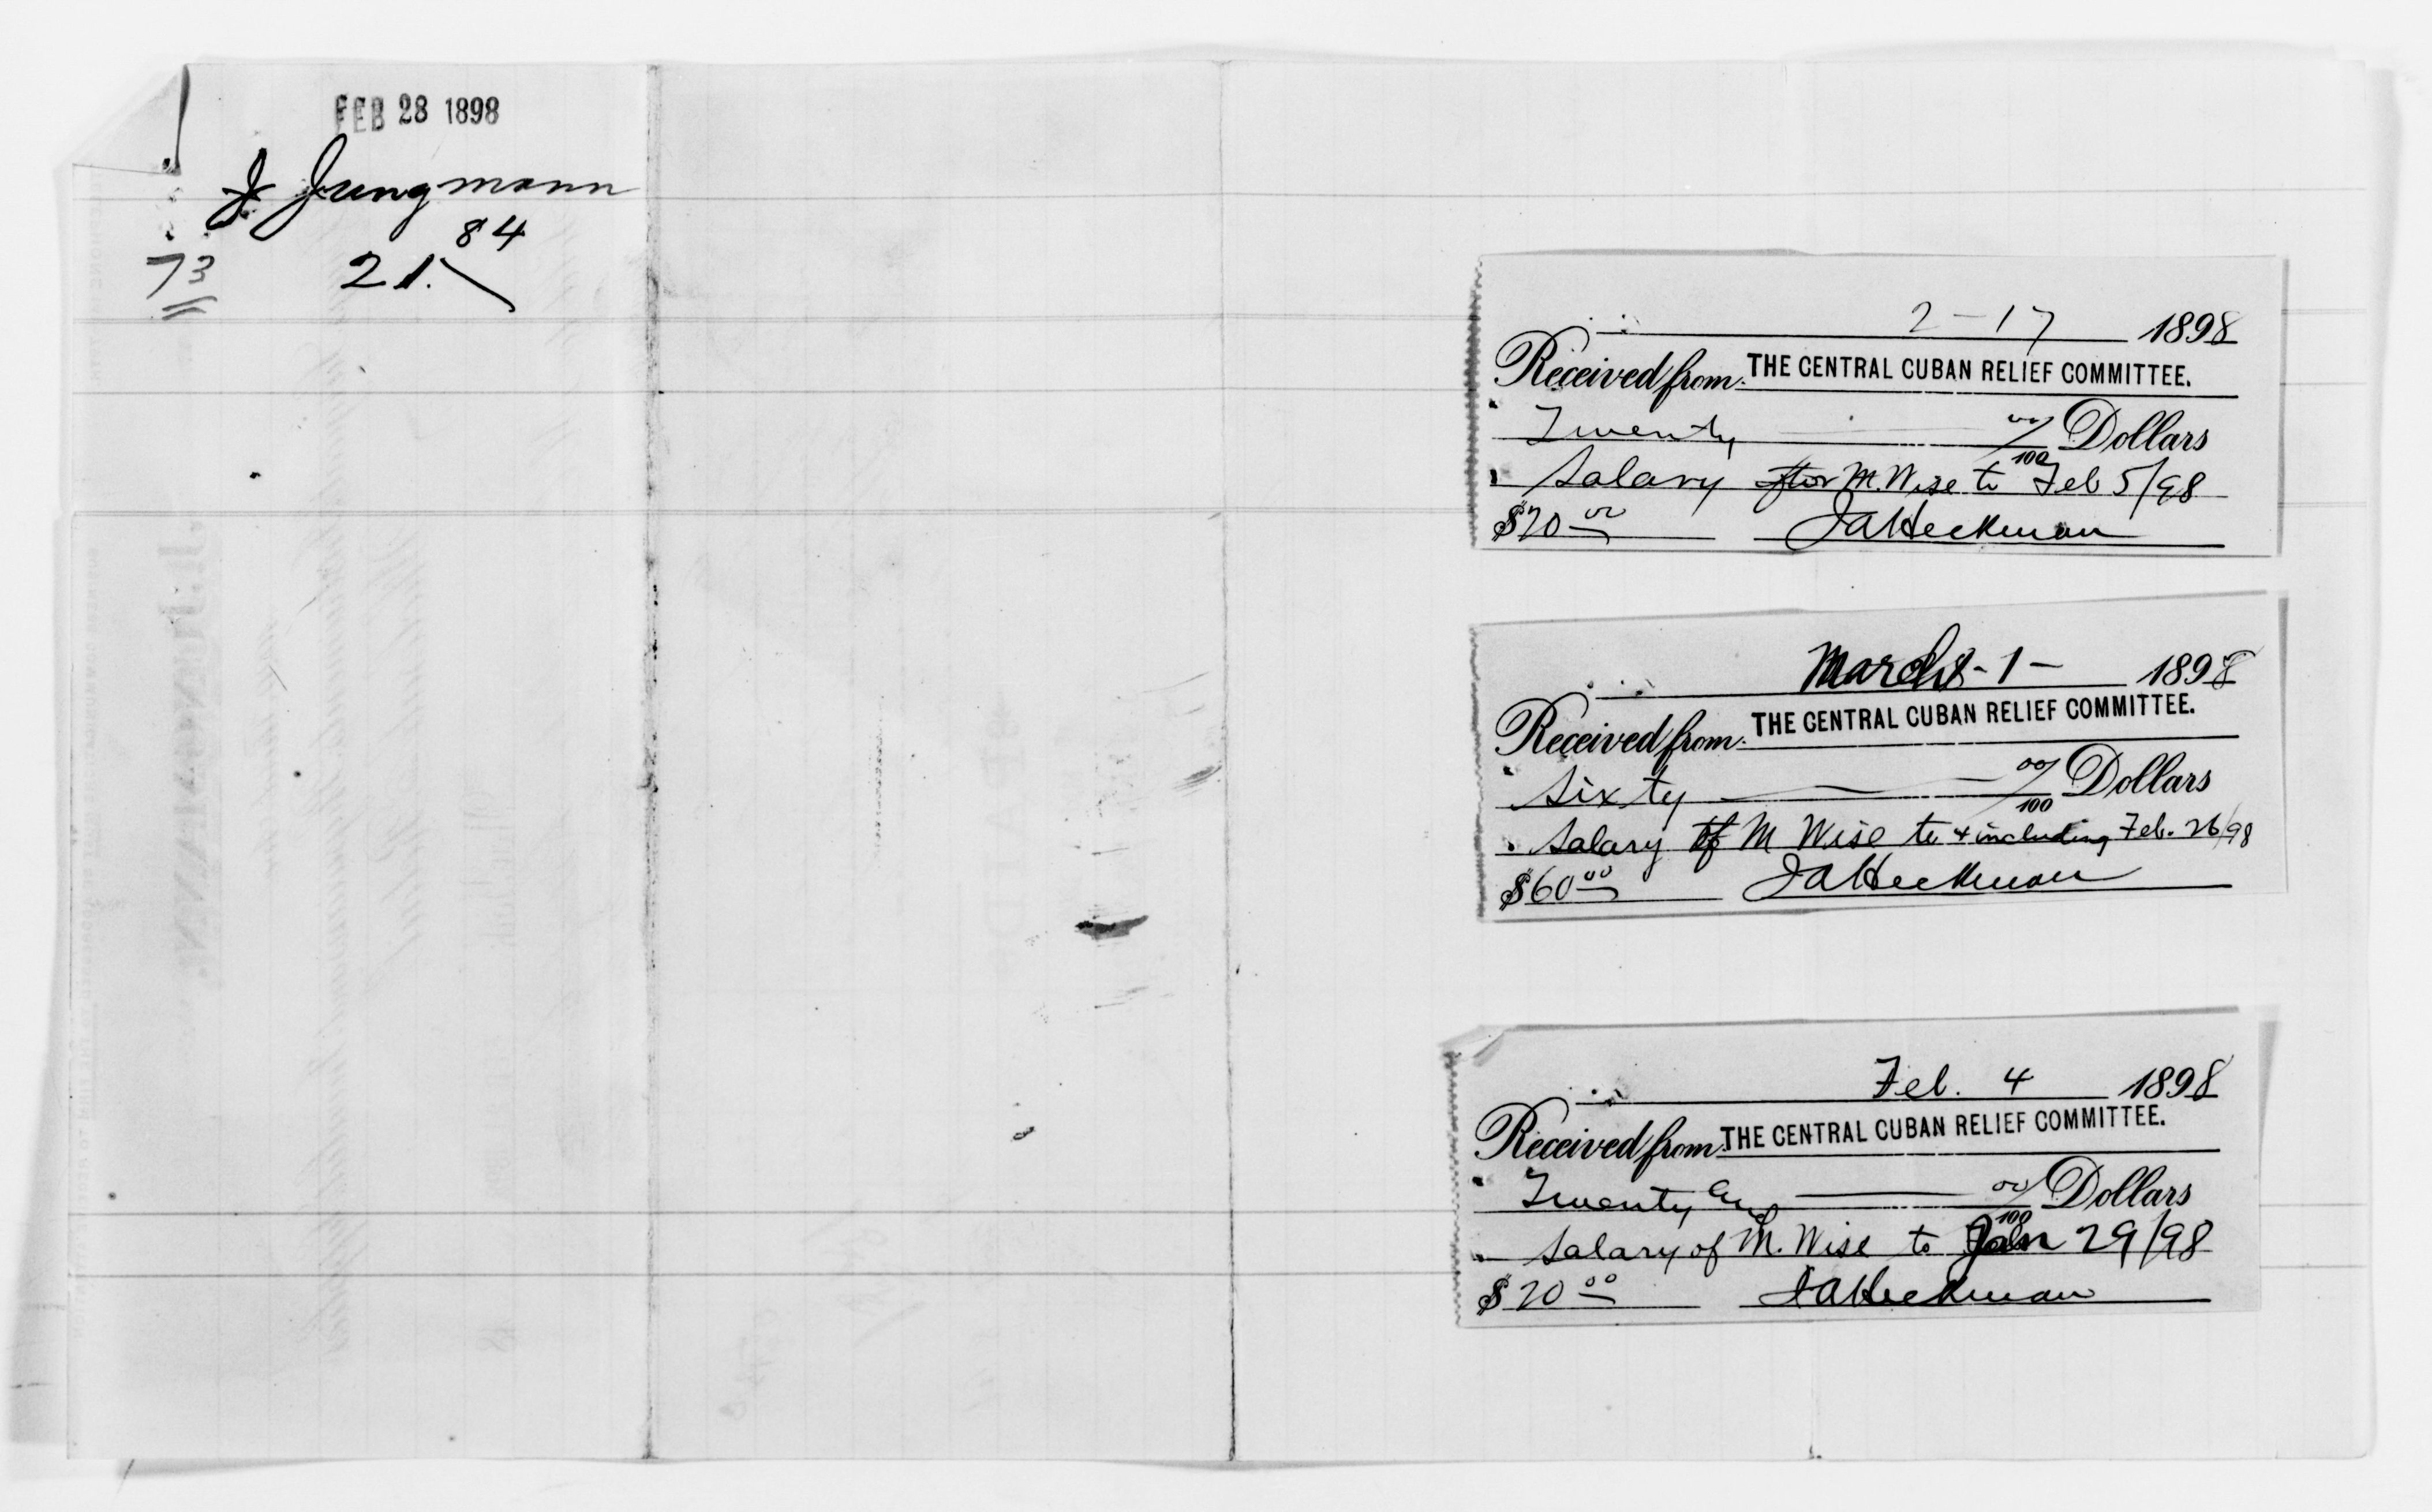 FEB 28 1898
J Jungmann
84
73 21.
2-17 1898
Received from THE CENTRAL CUBAN RELIEF COMMITTEE.
Twenty 00/100 Dollars
Salary for M. Wise to Feb 5/98
$20 00 JA Heckman
March 1 - 1898
Received from THE CENTRAL CUBAN RELIEF COMMITTEE.
Sixty 00/100 Dollars
Salary of M Wise to & including Feb. 26/98
$60 00 JA Heckman
Feb. 4 1898
Received from THE CENTRAL CUBAN RELIEF COMMITTEE.
Twenty and 00/100 Dollars
Salary of M. Wise to Jan 29/98
$20 00 JA Heckman